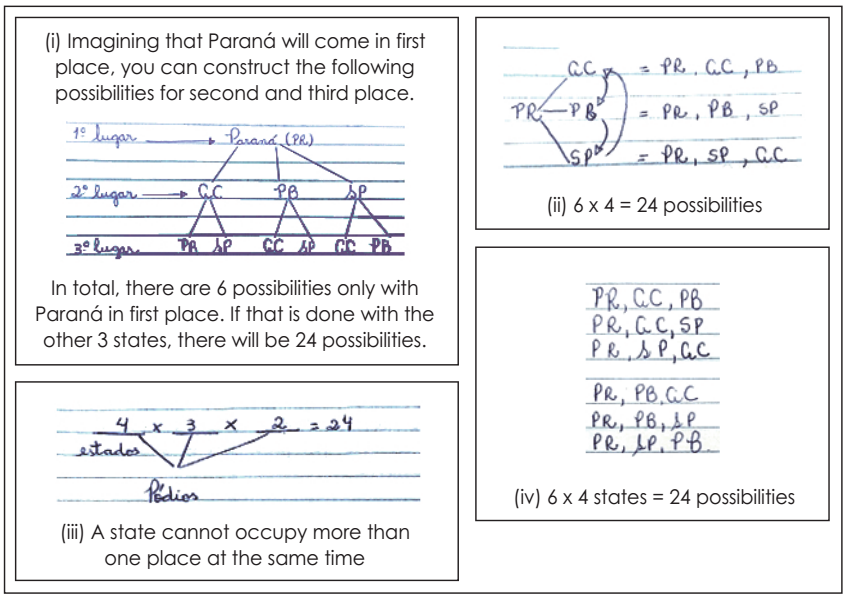 (i) Imagining that Paraná will come in first
place, you can construct the following
possibilities for second and third place.
1º lugar Paraná (PR)
2º lugar AC PB SP
3º lugar PB SP AC SP AC PB
In total, there are 6 possibilities only with
Paraná in first place. If that is done with the
other 3 states, there will be 24 possibilities.
AC = PR, AC, PB
PR PB = PR, PB, SP
SP = PR, SP, AC
(ii) 6 x 4 = 24 possibilities
4 x 3 x 2 = 24
estados
Pódios
(iii) A state cannot occupy more than
one place at the same time
PR, AC, PB
PR, AC, SP
PR, SP, AC
PR, PB, AC
PR, PB, SP
PR, SP, PB
(iv) 6 x 4 states = 24 possibilities